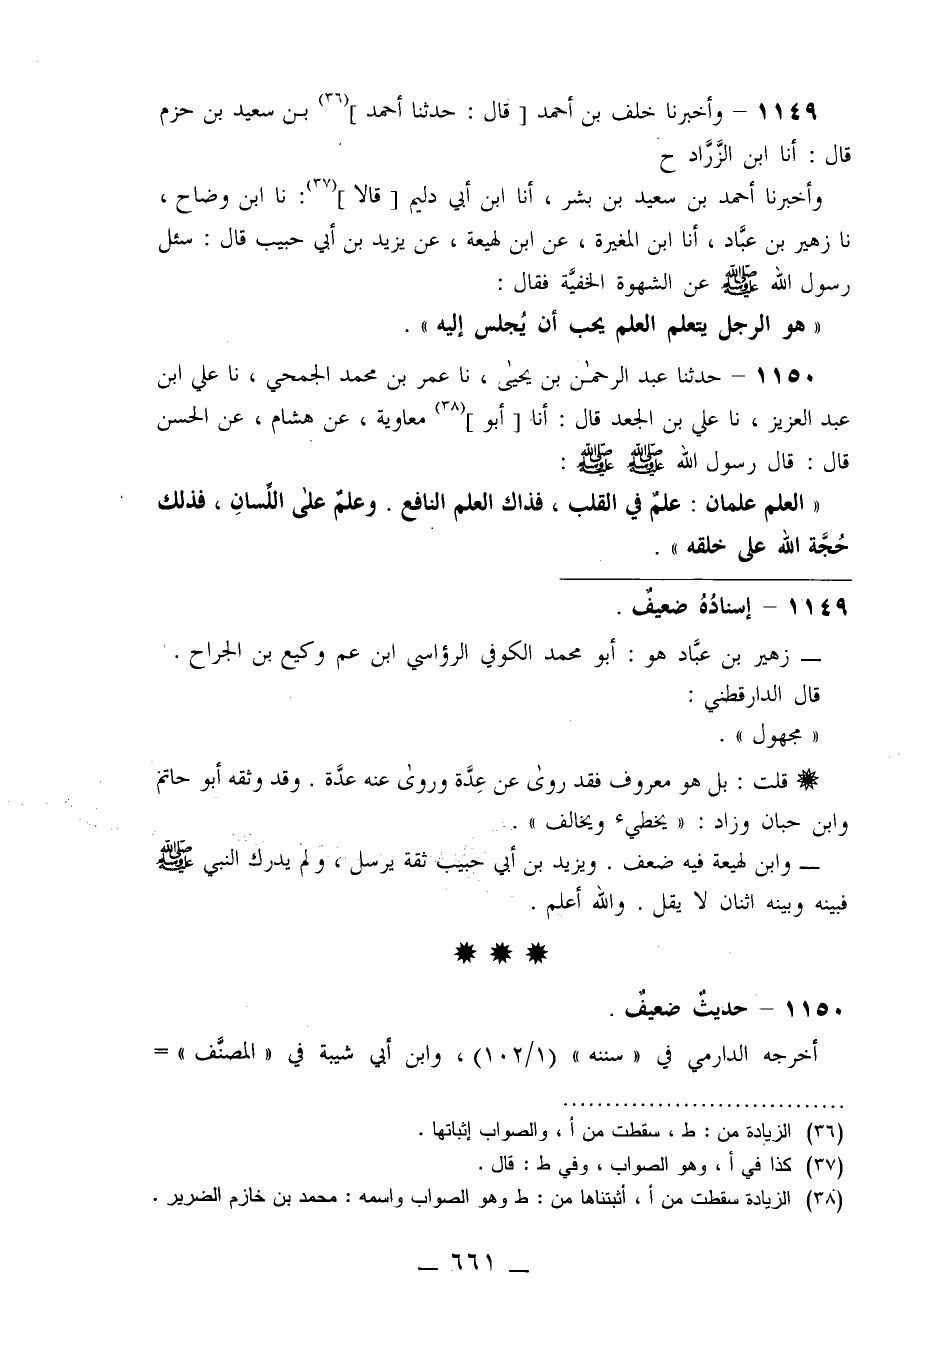 ١١٤٩ – وأخبرنا خلف بن أحمد [ قال : حدثنا أحمد ](٣٦) بـن سعيد بن حزم
قال : أنا ابن الزَّرَّاد ح
وأخبرنا أحمد بن سعيد بن بشر ، أنا ابن أبي دليم [ قالا ](٣٧): نا ابن وضاح ،
نا زهير بن عبَّاد ، أنا ابن المغيرة ، عن ابن لهيعة ، عن يزيد بن أبي حبيب قال : سئل
رسول الله ﷺ عن الشهوة الخفيَّة فقال :
« هو الرجل يتعلم العلم يحب أن يُجلس إليه » .
١١٥٠ – حدثنا عبد الرحمٰن بن يحيىٰ ، نا عمر بن محمد الجمحي ، نا علي ابن
عبد العزيز ، نا علي بن الجعد قال : أنا [ أبو ](٣٨) معاوية ، عن هشام ، عن الحسن
قال : قال رسول الله ﷺ ﷺ :
« العلم علمان : علمٌ في القلب ، فذاك العلم النافع . وعلمٌ علىٰ اللِّسانِ ، فذلك
حُجَّة الله على خلقه » .
١١٤٩ – إسنادُهُ ضعيفٌ .
— زهير بن عبَّاد هو : أبو محمد الكوفي الرؤاسي ابن عم وكيع بن الجراح .
قال الدارقطني :
« مجهول » .
✹ قلت : بل هو معروف فقد روىٰ عن عِدَّة وروىٰ عنه عدَّة . وقد وثقه أبو حاتم
وابن حبان وزاد : « يخطيء ويخالف » .
— وابن لهيعة فيه ضعف . ويزيد بن أبي حبيب ثقة يرسل ، ولم يدرك النبي ﷺ
فبينه وبينه اثنان لا يقل . والله أعلم .
✹ ✹ ✹
١١٥٠ – حديثٌ ضعيفٌ .
أخرجه الدارمي في « سننه » (١٠٢/١) ، وابن أبي شيبة في « المصنَّف » =
(٣٦) الزيادة من : ط ، سقطت من أ ، والصواب إثباتها .
(٣٧) كذا في أ ، وهو الصواب ، وفي ط : قال .
(٣٨) الزيادة سقطت من أ ، أثبتناها من : ط وهو الصواب واسمه : محمد بن خازم الضرير .
— ٦٦١ —